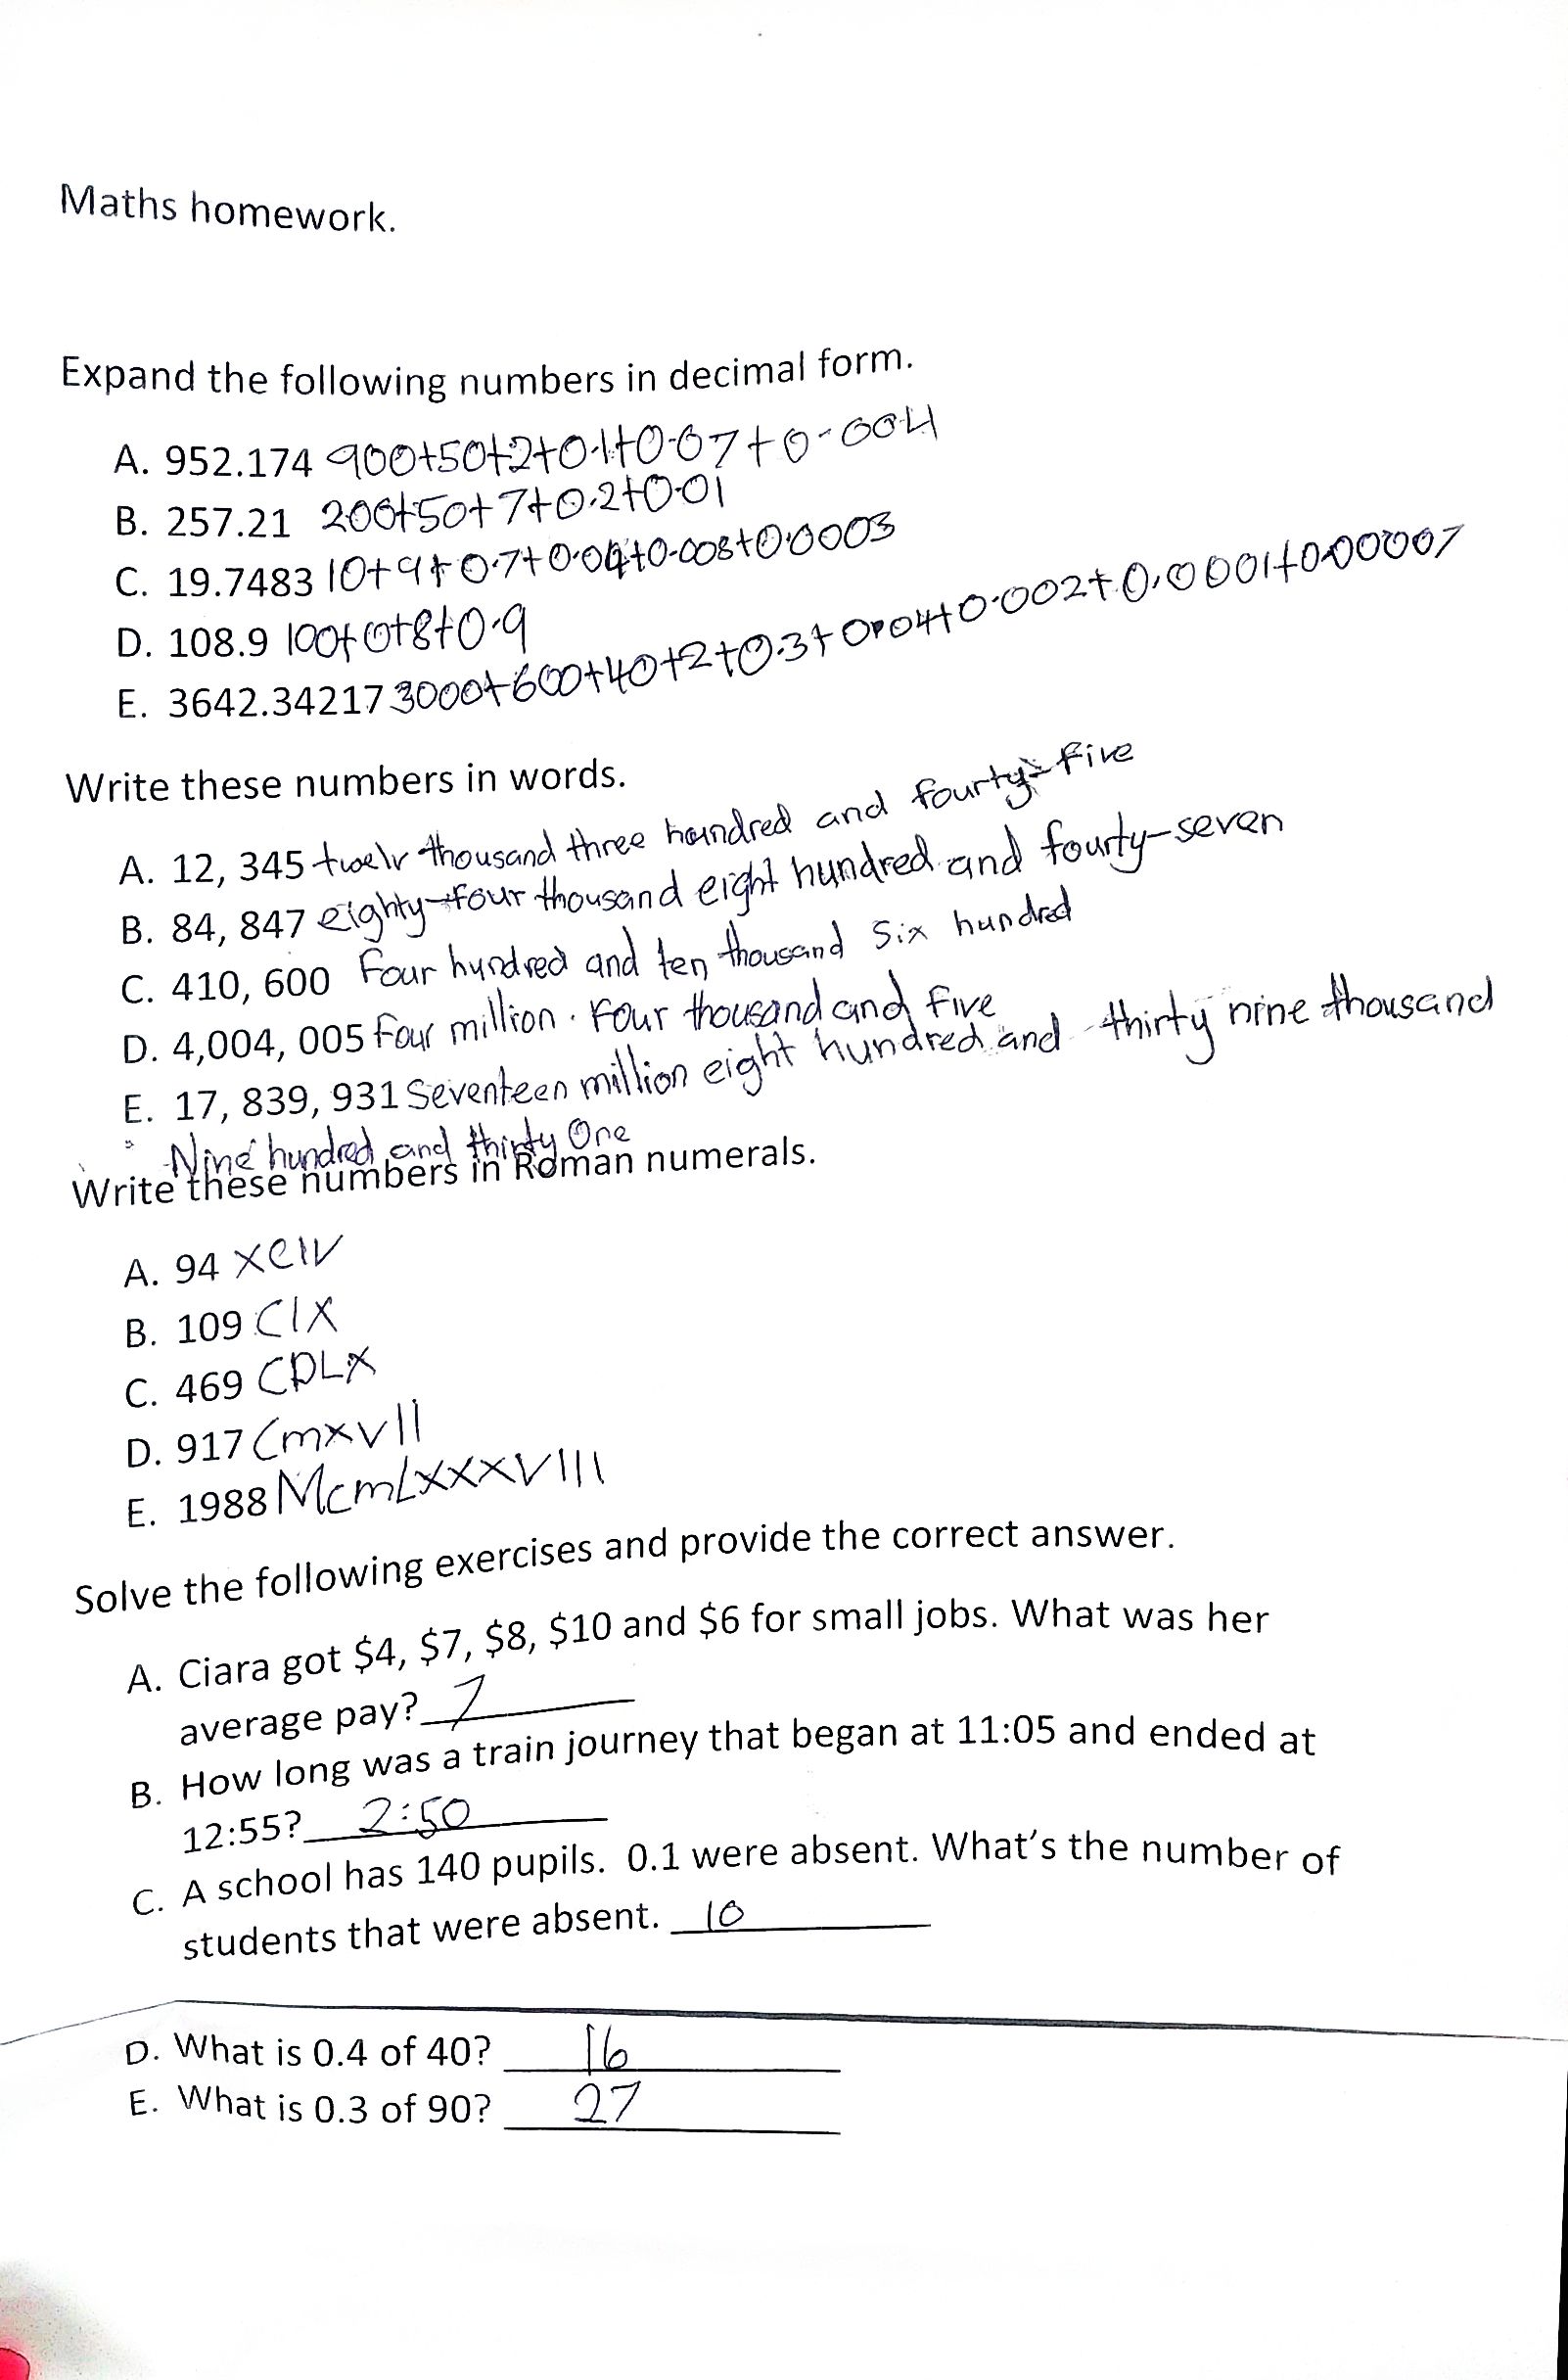 Maths homework.
Expand the following numbers in decimal form.
A. 952.174 900+50+2+0.1+0.07+0.004
B. 257.21 200+50+7+0.2+0.01
C. 19.7483 10+9+0.7+0.04+0.008+0.0003
D. 108.9 100+0+8+0.9
E. 3642.34217 3000+600+40+2+0.3+0.04+0.002+0.0001+0.00007
Write these numbers in words.
A. 12, 345 twelv thousand three hundred and fourty-five
B. 84, 847 eighty-four thousand eight hundred and fourty-seven
C. 410, 600 Four hundred and ten thousand Six hundred
D. 4,004, 005 Four million. Four thousand and five
E. 17, 839, 931 Seventeen million eight hundred and thirty nine thousand
Nine hundred and thirty One
Write these numbers in Roman numerals.
A. 94 XCIV
B. 109 CIX
C. 469 CDLX
D. 917 CmxvII
E. 1988 McmLxxxVIII
Solve the following exercises and provide the correct answer.
A. Ciara got $4, $7, $8, $10 and $6 for small jobs. What was her
average pay? 7
B. How long was a train journey that began at 11:05 and ended at
12:55? 2:50
C. A school has 140 pupils. 0.1 were absent. What's the number of
students that were absent. 10
D. What is 0.4 of 40? 16
E. What is 0.3 of 90? 27